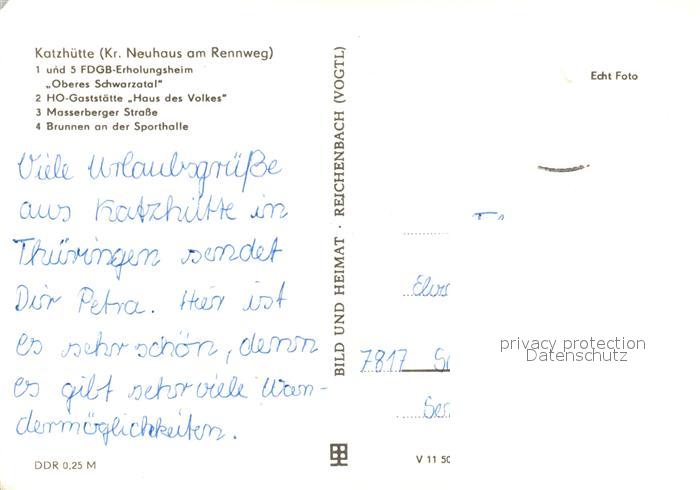 Katzhütte (Kr. Neuhaus am Rennweg)
1 und 5 FDGB-Erholungsheim
„Oberes Schwarzatal"
2 HO-Gaststätte „Haus des Volkes"
3 Masserberger Straße
4 Brunnen an der Sporthalle
Viele Urlaubsgrüße
aus Katzhütte in
Thüringen sendet
Dir Petra. Hier ist
es sehr schön, denn
es gibt sehr viele Wan-
dermöglichkeiten.
DDR 0,25 M
BILD UND HEIMAT · REICHENBACH (VOGTL)
Echt Foto
7817
privacy protection
Datenschutz
V 11 50